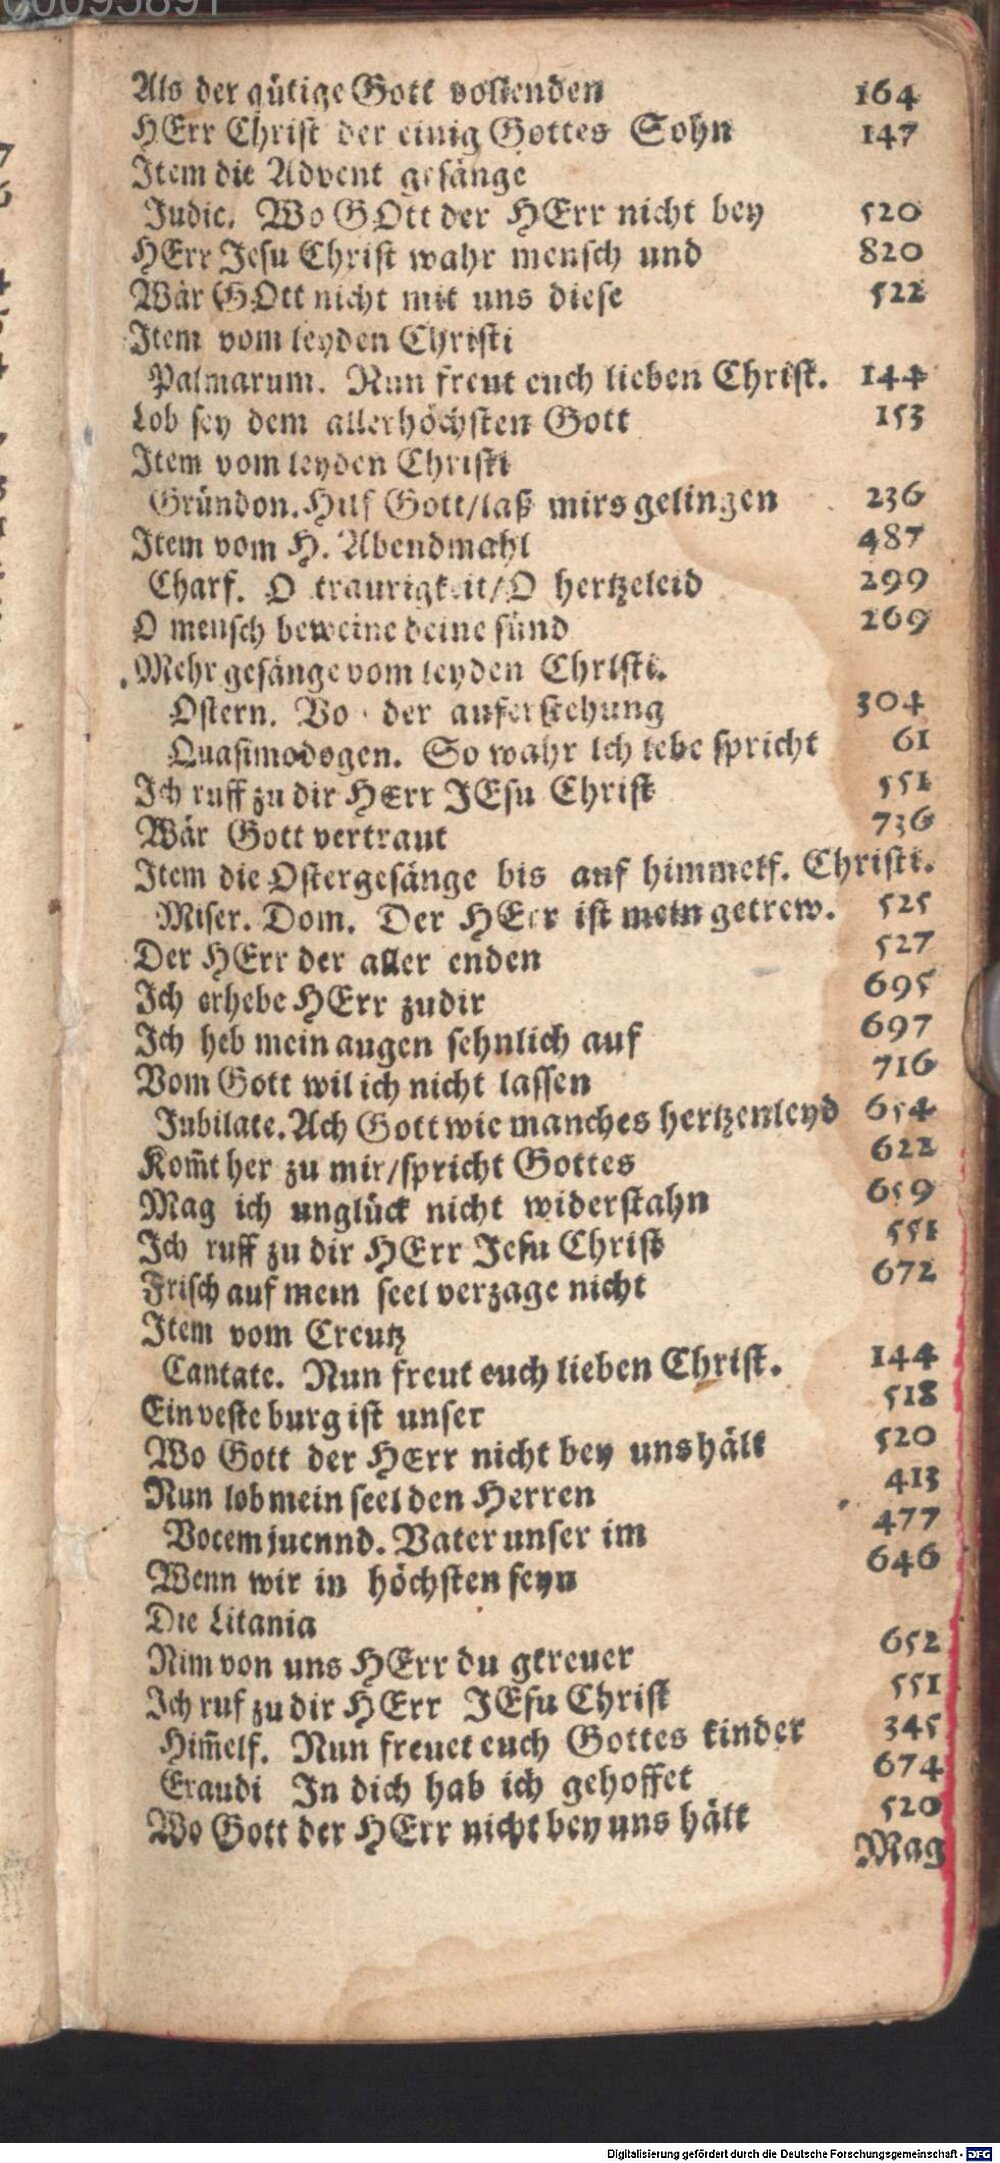 Als der gütige Gott vollenden 164
HErr Christ der einig Gottes Sohn 147
Item die Advent gesänge
Judic. Wo GOtt der HErr nicht bey 520
HErr Jesu Christ wahr mensch und 820
Wär GOtt nicht mit uns diese 522
Item vom leyden Christi
Palmarum. Nun freut euch lieben Christ. 144
Lob sey dem allerhöchsten Gott 153
Item vom leyden Christi
Gründon. Hilf Gott/laß mirs gelingen 236
Item vom H. Abendmahl 487
Charf. O traurigkeit/O hertzeleid 299
O mensch beweine deine sünd 269
Mehr gesänge vom leyden Christi.
Ostern. Vo der auferstehung 304
Quasimodogen. So wahr ich lebe spricht 61
Ich ruff zu dir HErr JEsu Christ 551
Wär Gott vertraut 736
Item die Ostergesänge bis auf himmelf. Christi.
Miser. Dom. Der HErr ist mein getrew. 525
Der HErr der aller enden 527
Ich erhebe HErr zu dir 695
Ich heb mein augen sehnlich auf 697
Vom Gott wil ich nicht lassen 716
Jubilate. Ach Gott wie manches hertzenleyd 654
Kom̃t her zu mir/spricht Gottes 622
Mag ich unglück nicht widerstahn 659
Ich ruff zu dir HErr Jesu Christ 551
Frisch auf mein seel verzage nicht 672
Item vom Creutz
Cantate. Nun freut euch lieben Christ. 144
Ein veste burg ist unser 518
Wo Gott der HErr nicht bey uns hält 520
Nun lob mein seel den Herren 413
Vocem jucund. Vater unser im 477
Wenn wir in höchsten seyn 646
Die Litania
Nim von uns HErr du getreuer 652
Ich ruf zu dir HErr JEsu Christ 551
Him̃elf. Nun freuet euch Gottes kinder 345
Exaudi In dich hab ich gehoffet 674
Wo Gott der HErr nicht bey uns hält 520
Mag
Digitalisierung gefördert durch die Deutsche Forschungsgemeinschaft - DFG